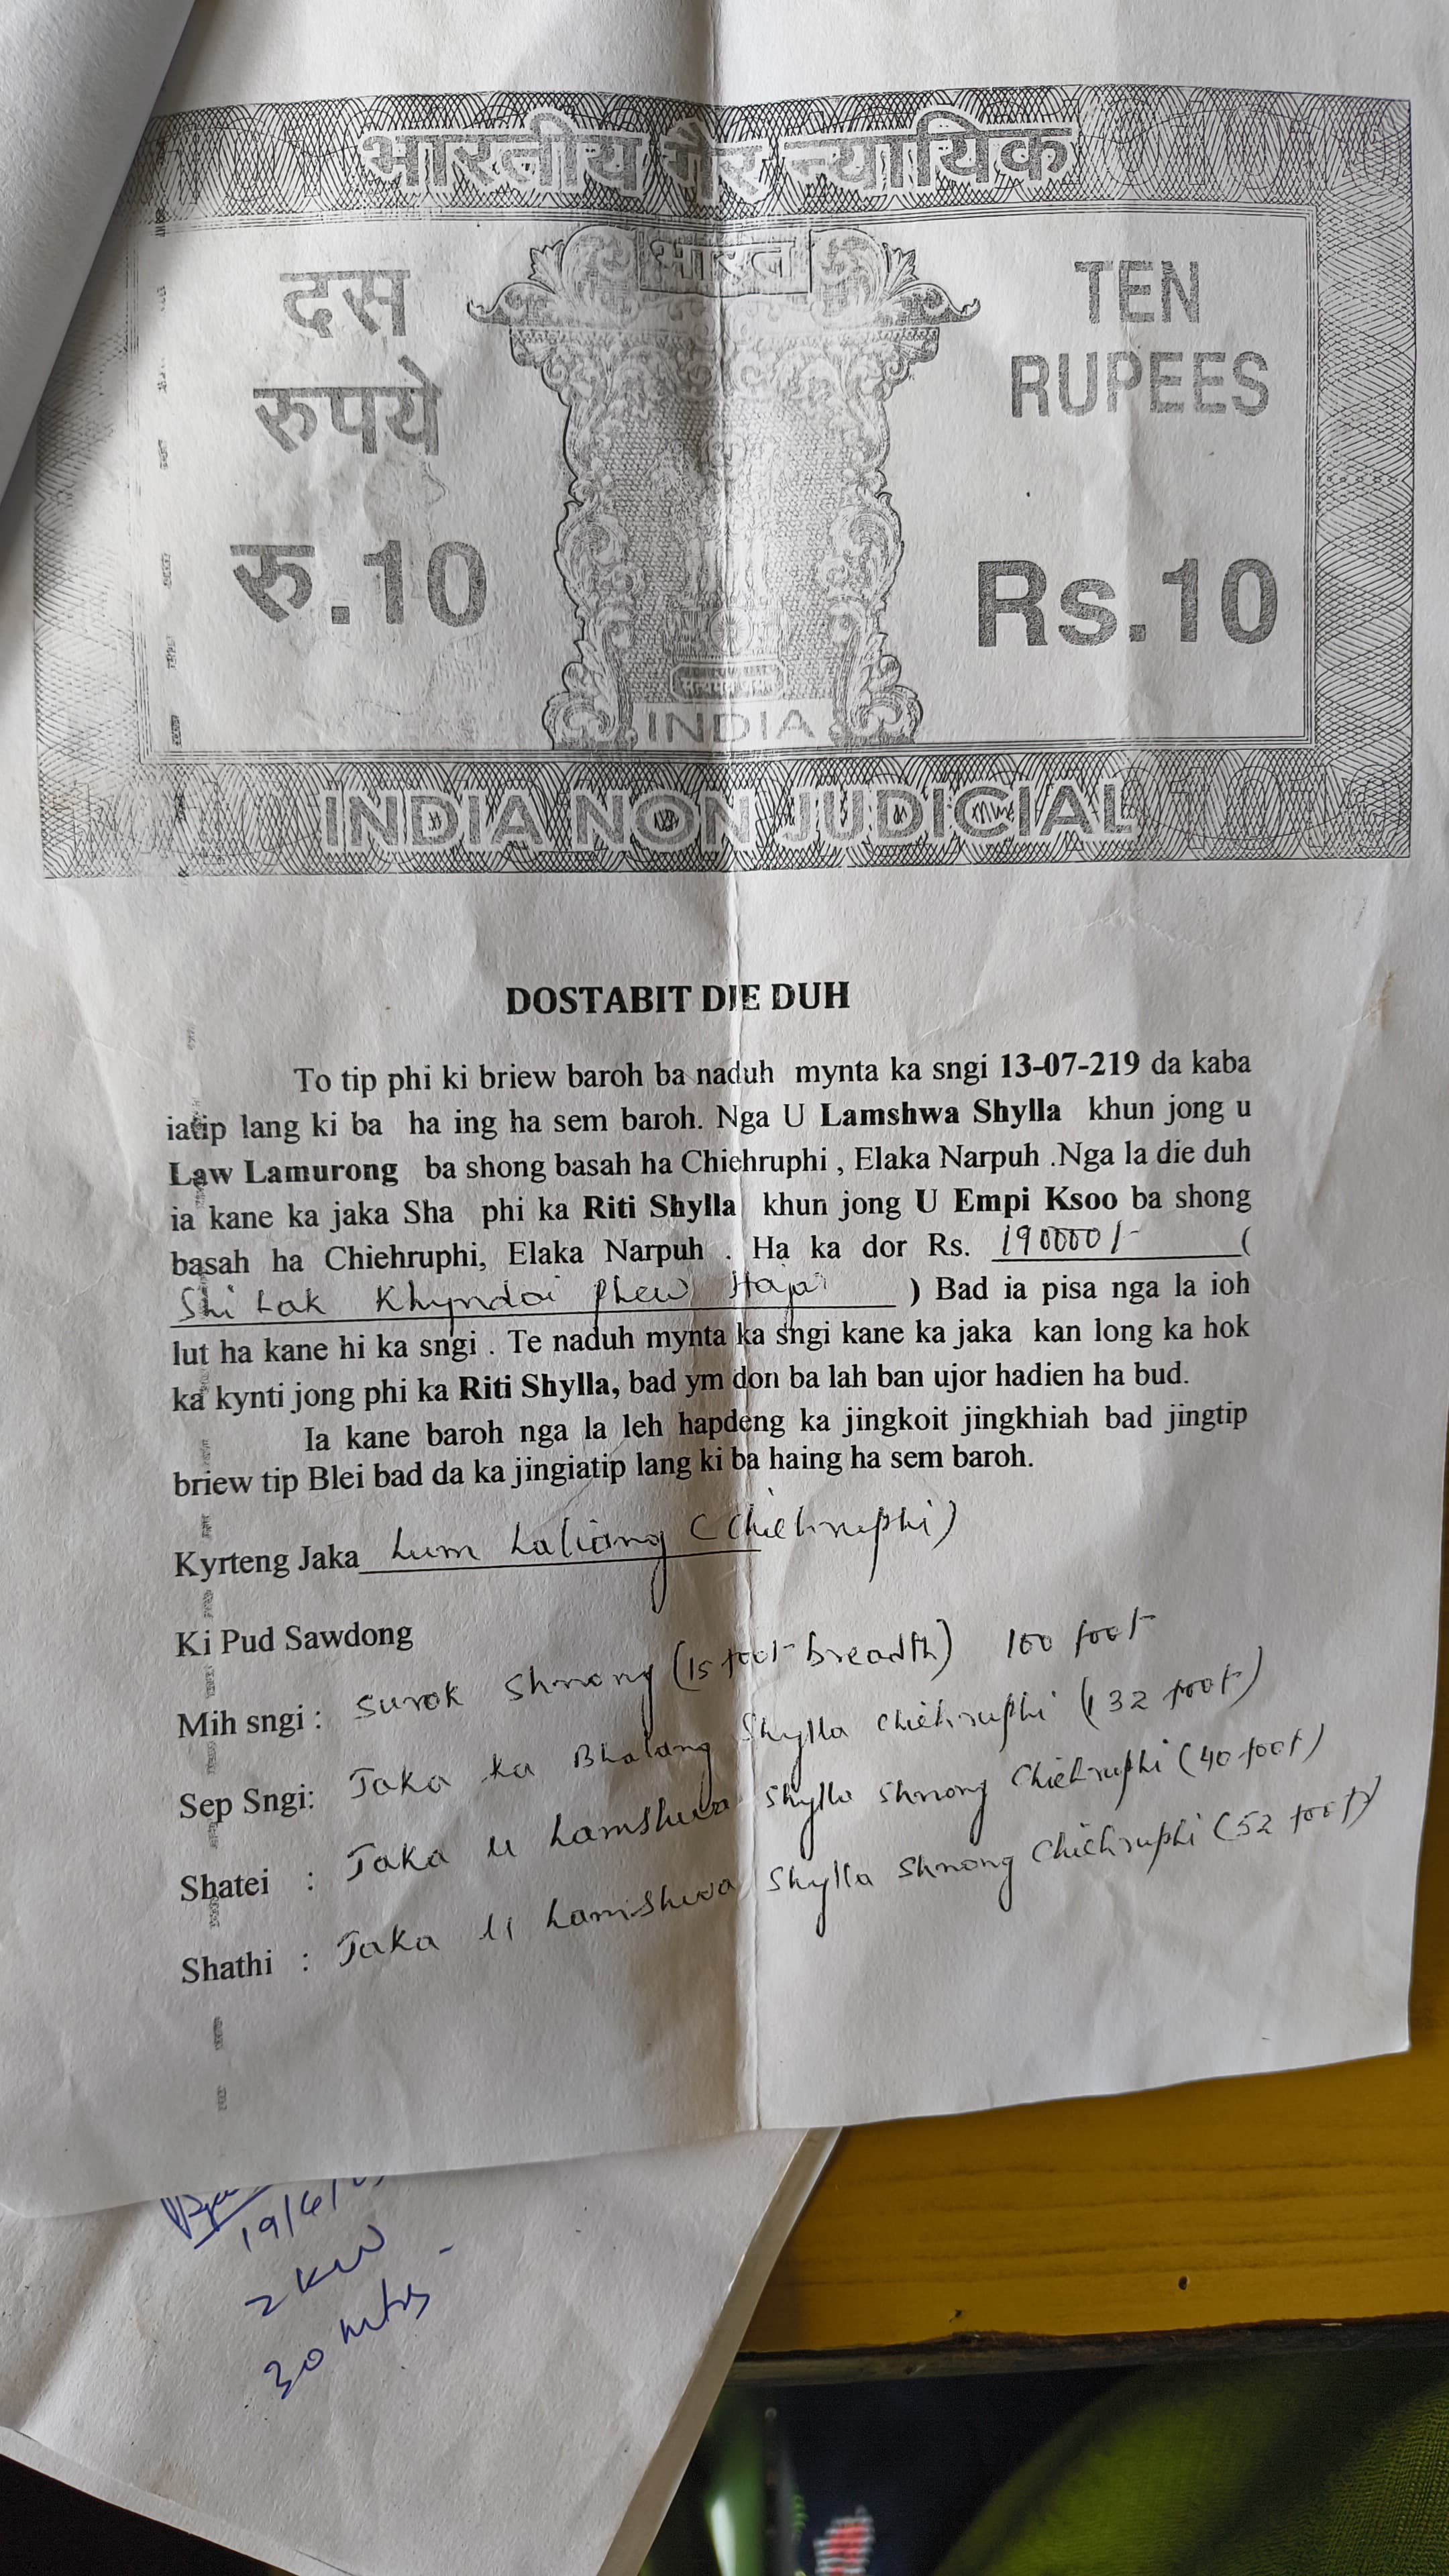 भारतीय गैर न्यायिक
भारत
दस
रुपये
रु.10
TEN
RUPEES
Rs.10
INDIA
INDIA NON JUDICIAL
DOSTABIT DIE DUH
To tip phi ki briew baroh ba naduh mynta ka sngi 13-07-219 da kaba
iatip lang ki ba ha ing ha sem baroh. Nga U Lamshwa Shylla khun jong u
Law Lamurong ba shong basah ha Chiehruphi , Elaka Narpuh .Nga la die duh
ia kane ka jaka Sha phi ka Riti Shylla khun jong U Empi Ksoo ba shong
basah ha Chiehruphi, Elaka Narpuh . Ha ka dor Rs. 190000/- (
Shi Lak Khyndai phew Hajar ) Bad ia pisa nga la ioh
lut ha kane hi ka sngi . Te naduh mynta ka sngi kane ka jaka kan long ka hok
ka kynti jong phi ka Riti Shylla, bad ym don ba lah ban ujor hadien ha bud.
Ia kane baroh nga la leh hapdeng ka jingkoit jingkhiah bad jingtip
briew tip Blei bad da ka jingiatip lang ki ba haing ha sem baroh.
Kyrteng Jaka Lum Laliang (Chiehruphi)
Ki Pud Sawdong
Mih sngi : Surok Shnong (15 foot breadth) 100 foot
Sep Sngi: Jaka ka Bhalang Shylla Chiehruphi (132 foot)
Shatei : Jaka u Lamshwa Shylla Shnong Chiehruphi (40 foot)
Shathi : Jaka u Lamishwa Shylla Shnong Chiehruphi (52 foot)
2 KW
30 mtrs